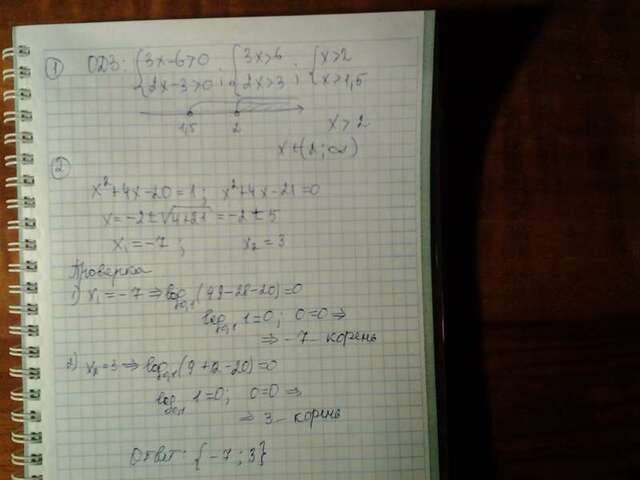 ① ОДЗ: {3x-6>0 ; {3x>6 ; {x>2
{2x-3>0 ; {2x>3 ; {x>1,5
1,5 2
x>2
x∈(2;∞)
②
x²+4x-20=1; x²+4x-21=0
x=-2±√4+21=-2±5
x₁=-7; x₂=3
Проверка
1) x₁=-7⇒log₀,₁(49-28-20)=0
log₀,₁1=0; 0=0⇒
⇒-7- корень
2) x₂=3⇒log₀,₁(9+12-20)=0
log₀,₁1=0; 0=0⇒
⇒3- корень
Ответ: {-7;3}